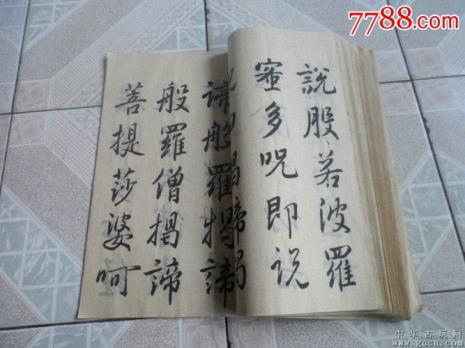 7788.com
說般若波羅
蜜多呪即説
諦般羅揭諦
般羅僧揭諦
菩提莎婆呵
中华古玩网
www.gucn.com